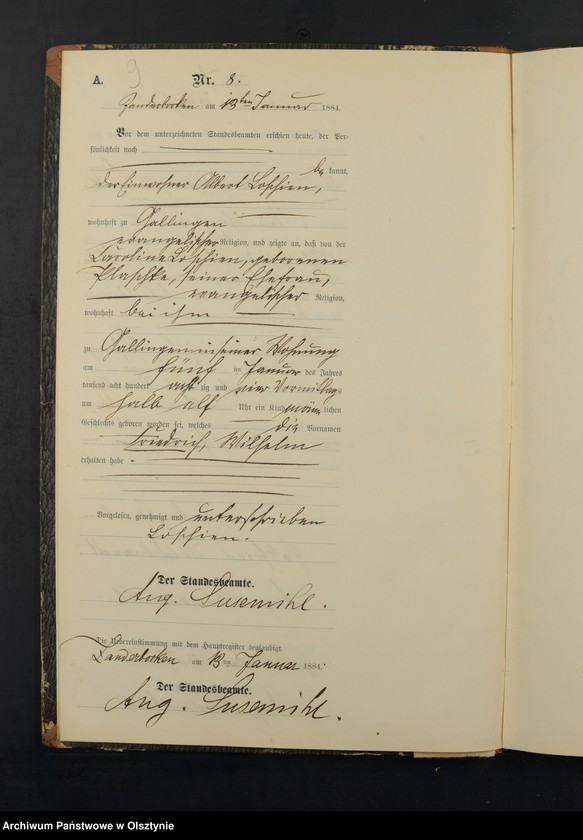 A. 9 Nr. 8.
Zanderborken am 13ten Januar 1884.
Vor dem unterzeichneten Standesbeamten erschien heute, der Per-
sönlichkeit nach
be kannt,
der Einwohner Albert Loschien,
wohnhaft zu Gallingen
evangelischer Religion, und zeigte an, daß von der
Caroline Loschien, geborenen
Plaschke, seiner Ehefrau,
evangelischer Religion,
wohnhaft bei ihm
zu Gallingen in seiner Wohnung
am fünf ten Januar des Jahres
tausend acht hundert acht zig und vier Vormittags
um halb elf Uhr ein Kind männ lichen
Geschlechts geboren worden sei, welches die Vornamen
Friedrich, Wilhelm
erhalten habe.
Vorgelesen, genehmigt und unterschrieben
Loschien.
Der Standesbeamte.
Aug. Susemihl.
Die Uebereinstimmung mit dem Hauptregister beglaubigt
Zanderborken am 13 ten Januar 1884.
Der Standesbeamte.
Aug. Susemihl.
Archiwum Państwowe w Olsztynie